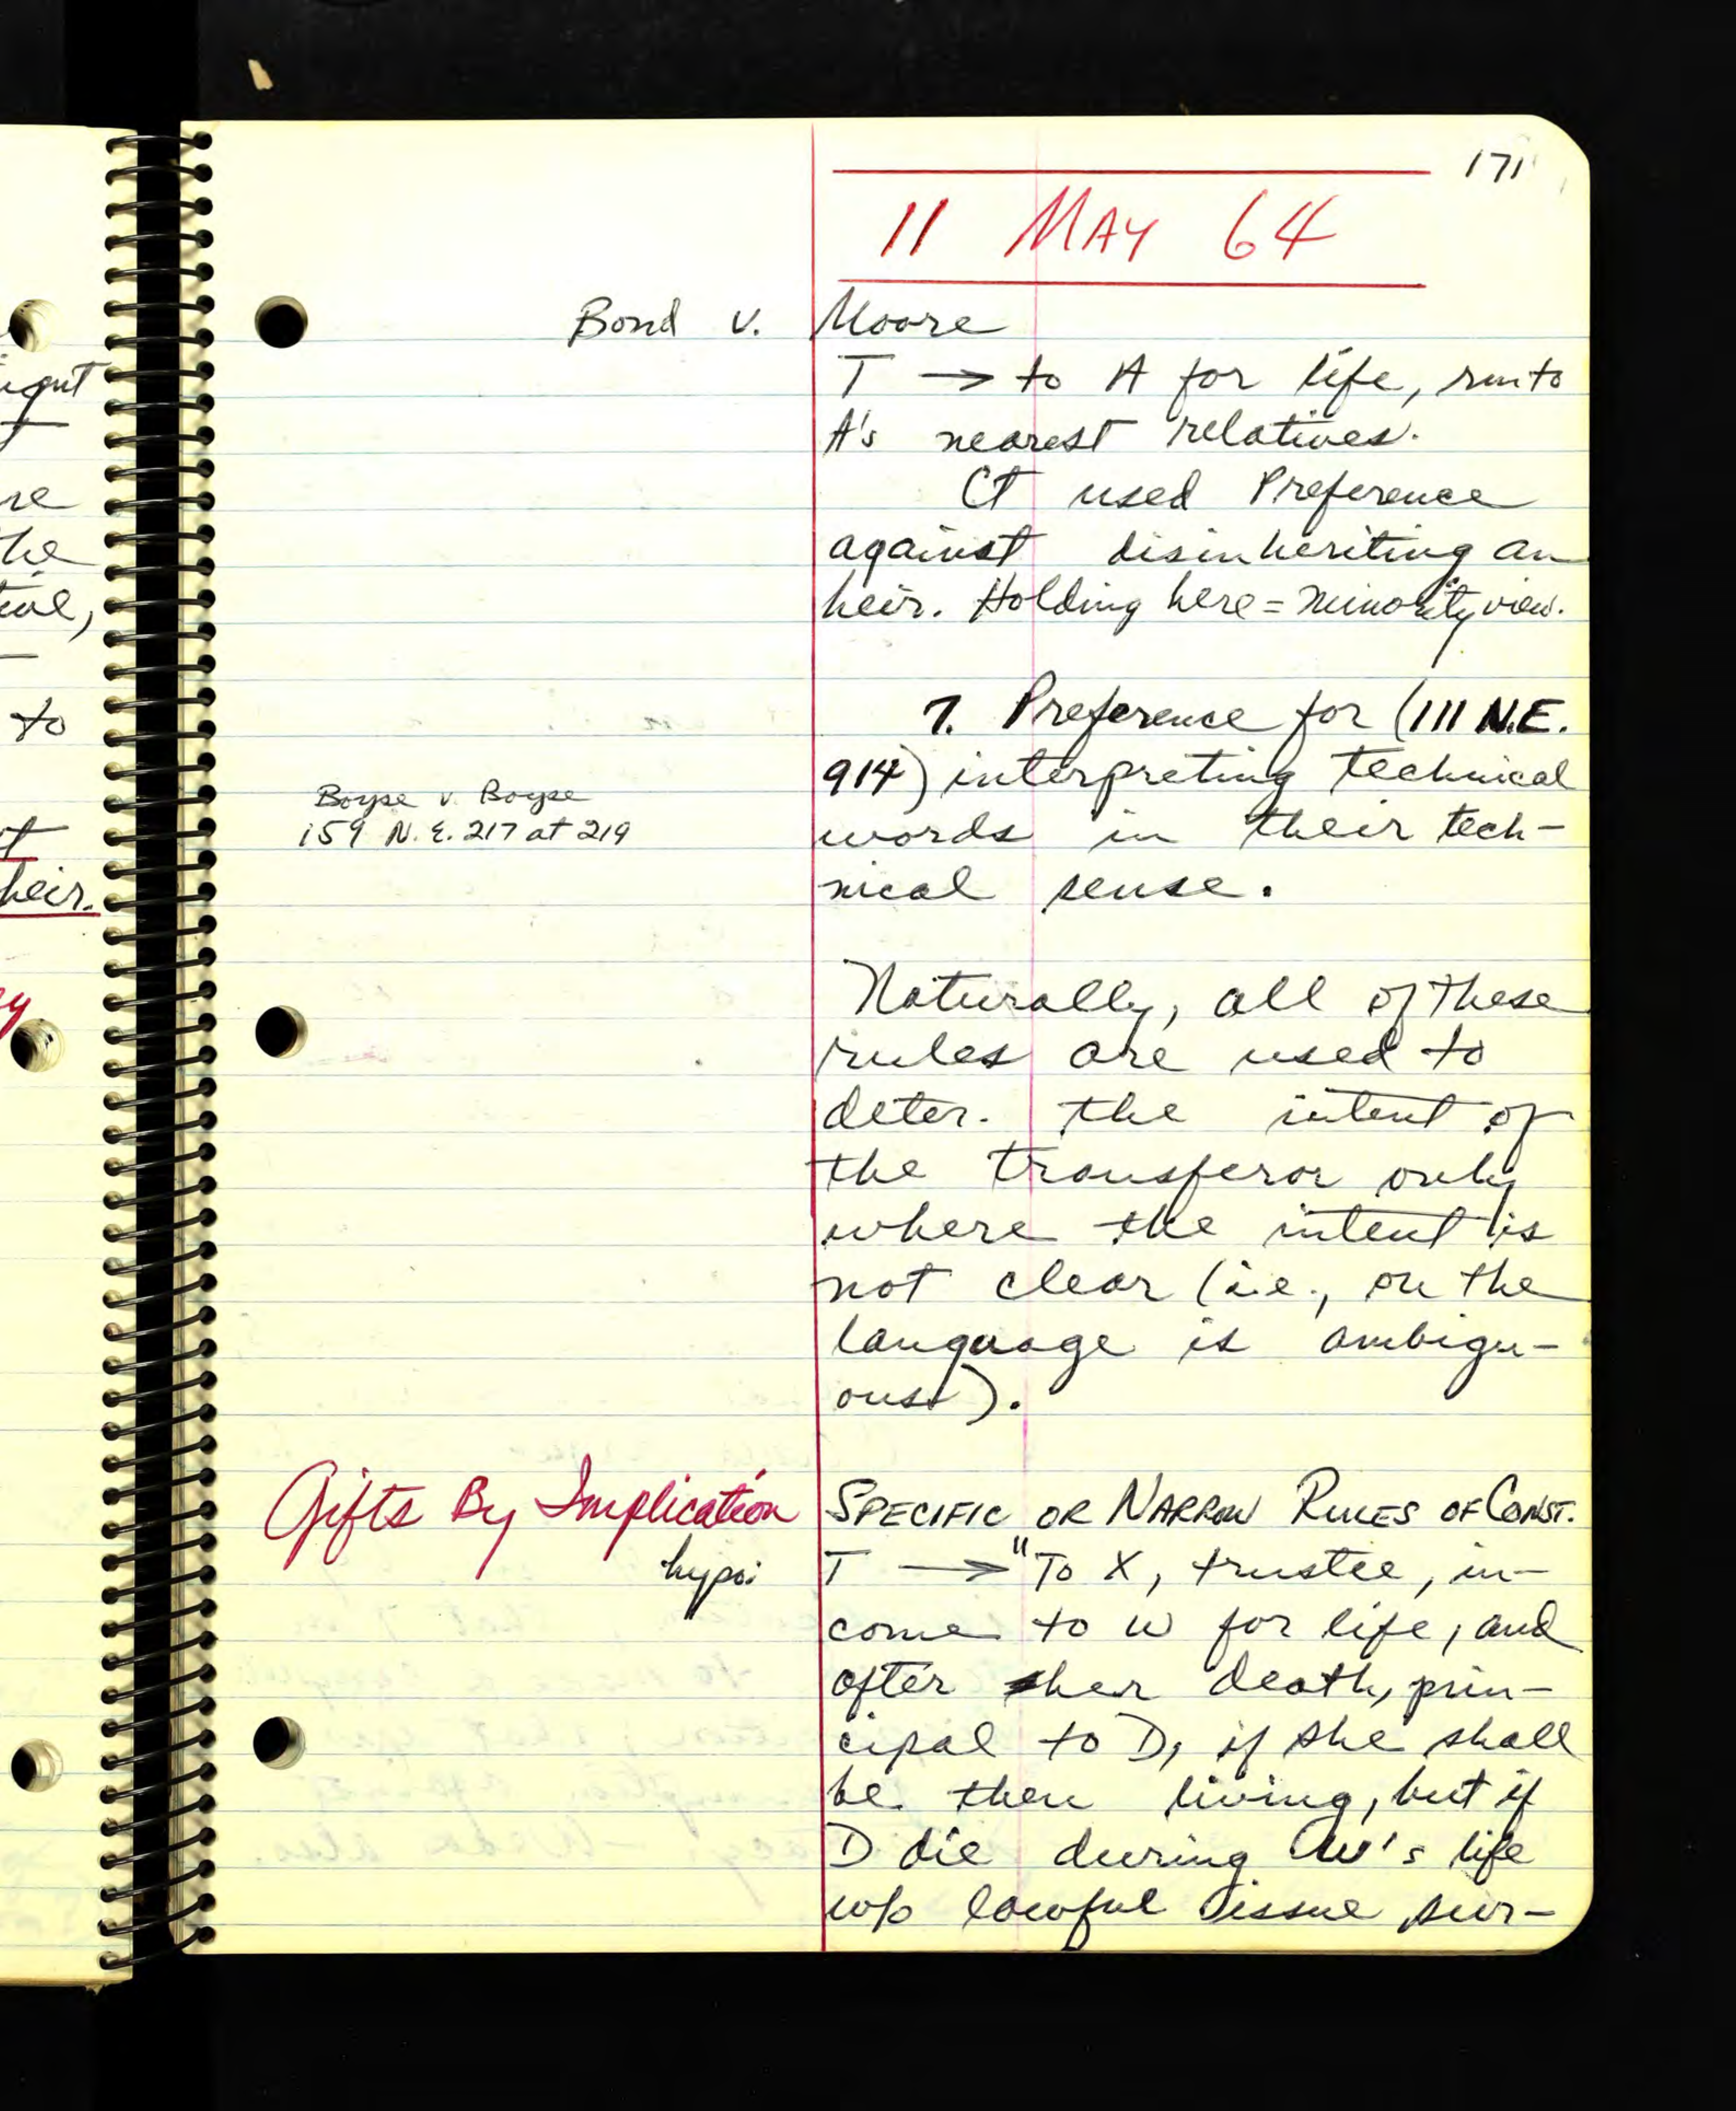 171
11 MAY 64
Bond v. Moore
T → to A for life, rm to
A's nearest relatives.
Ct used Preference
against disinheriting an
heir. Holding here = minority view.
7. Preference for (111 N.E.
914) interpreting technical
Boyse v. Boyse
words in their tech-
159 N.E. 217 at 219
nical sense.
Naturally, all of these
rules are used to
deter. the intent of
the transferor only
where the intent is
not clear (i.e., on the
language is ambigu-
ous).
Gifts By Implication
SPECIFIC OR NARROW RULES OF CONST.
hypo:
T → "To X, trustee, in-
come to W for life, and
after her death, prin-
cipal to D, if she shall
be then living, but if
D die during W's life
w/o lawful issue sur-
ight
re
he
tive,
to
heir.